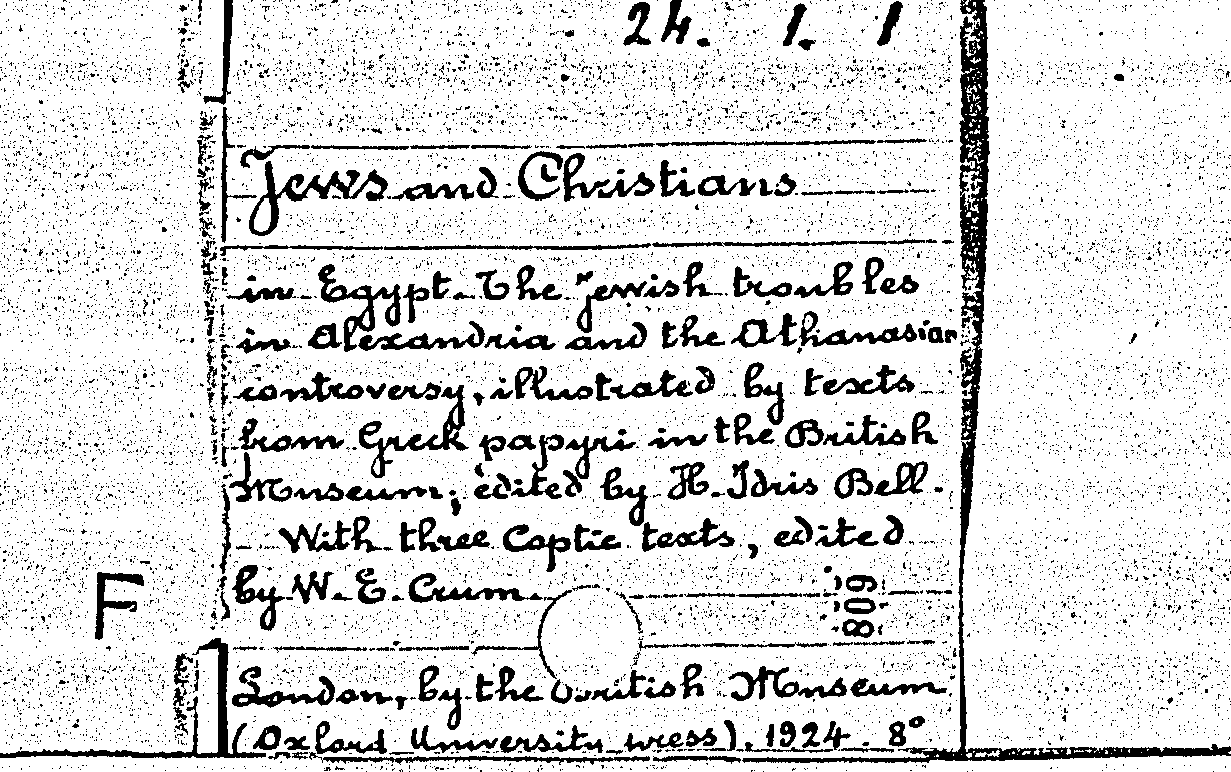 24. 1. 1
Jews and Christians
in Egypt. The Jewish troubles
in Alexandria and the Athanasian
controversy, illustrated by texts
from Greek papyri in the British
Museum, edited by H. Idris Bell.
With three Coptic texts, edited
by W. E. Crum.
809
F
London, by the British Museum
(Oxford University press). 1924. 8°